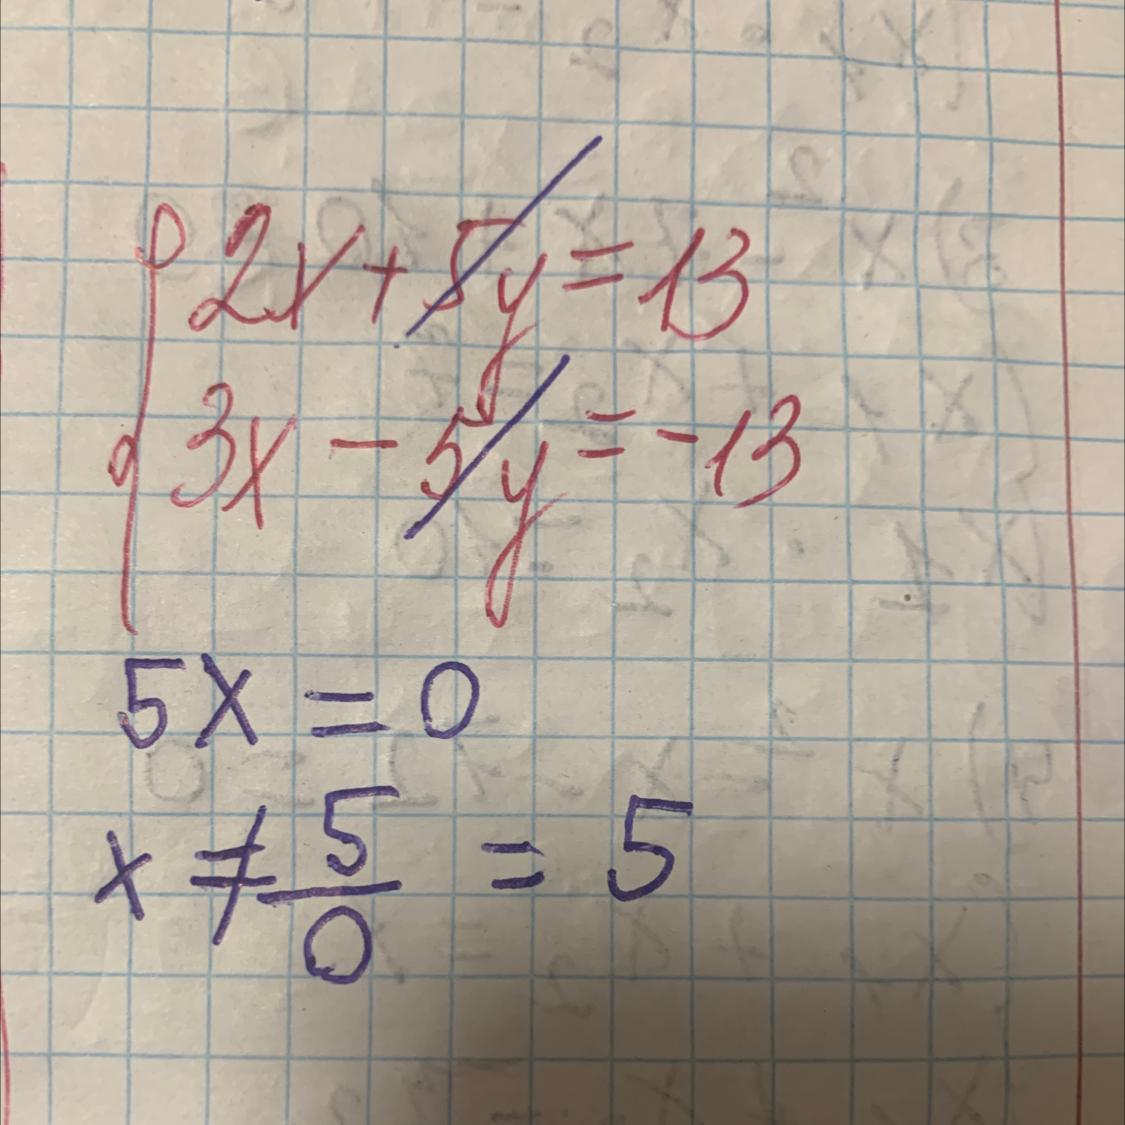 2x + 5y = 13
3x - 5y = -13
5x = 0
x ≠ 5/0 = 5